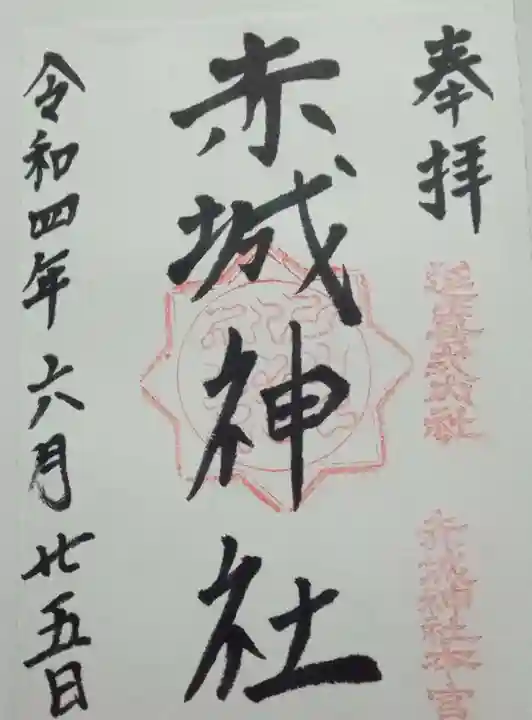 奉拝
赤城神社本宮
赤城神社
令和四年六月廿五日